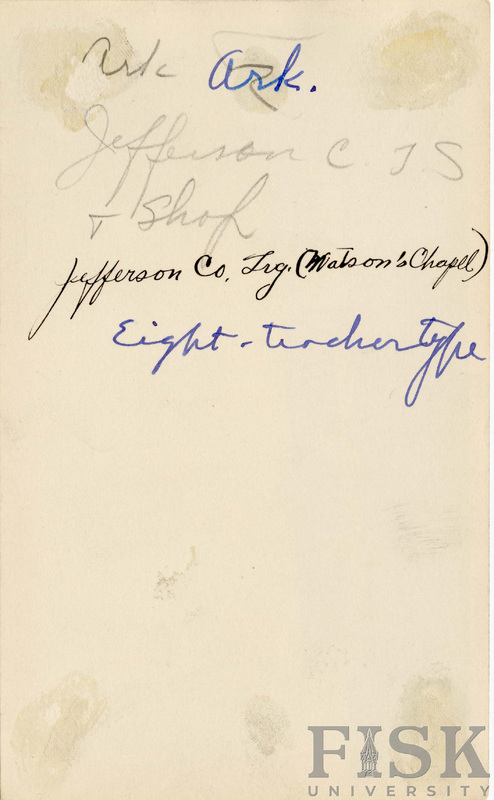 Ark Ark.
Jefferson C. T S
+ Shop
Jefferson Co. Trg. (Watson's Chapel)
Eight-teacher type
FISK
UNIVERSITY